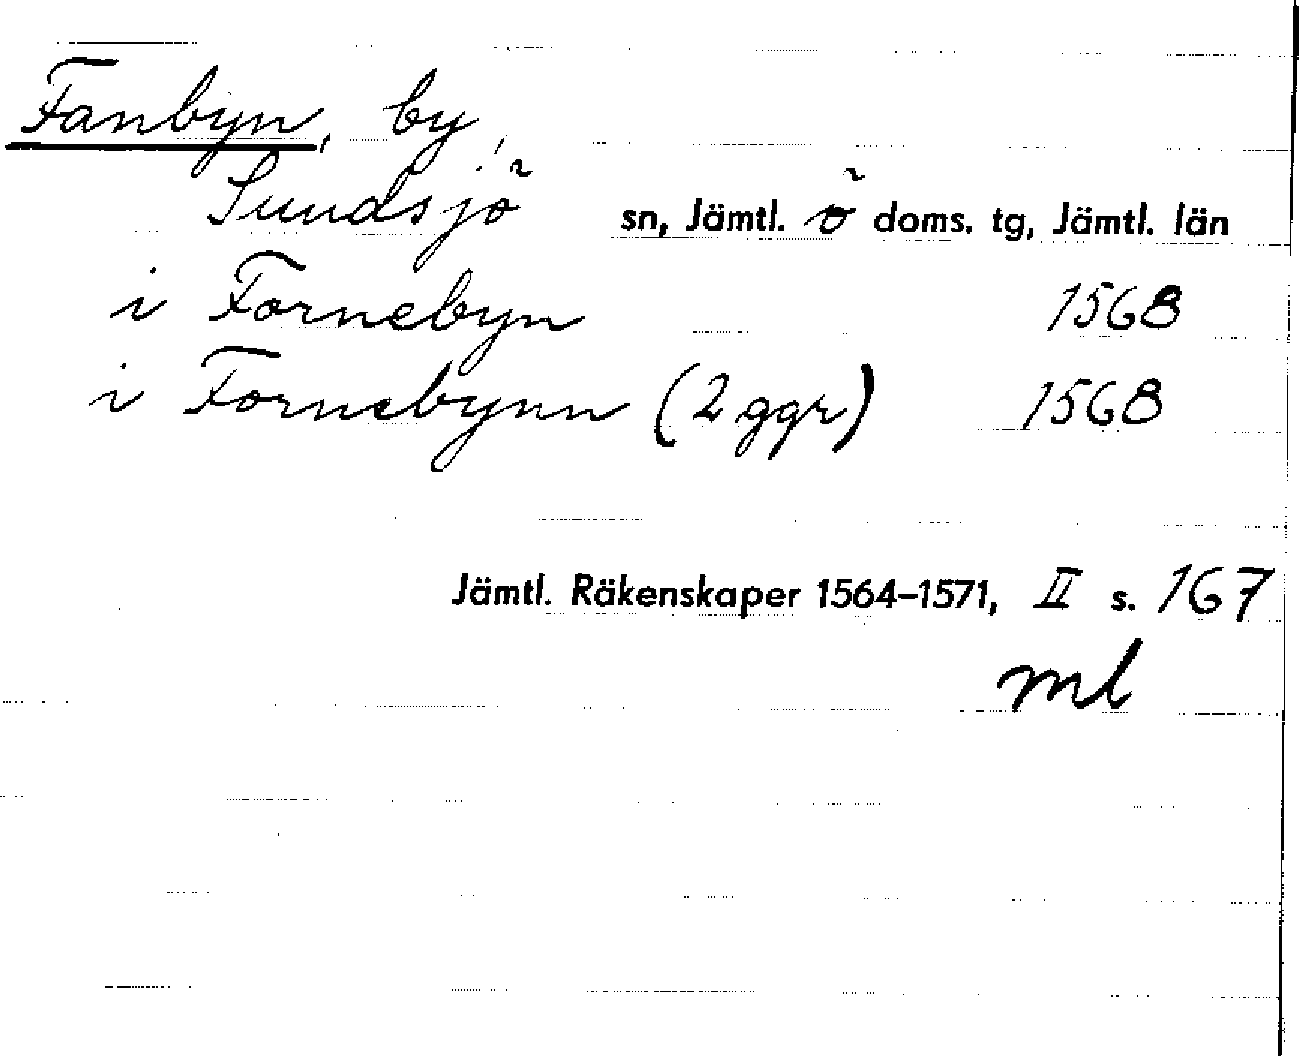 Fanbyn, by
Sundsjö sn, Jämtl. ö doms. tg, Jämtl. län
i Fornebyn 1568
i Fornebynn (2 ggr) 1568
Jämtl. Räkenskaper 1564–1571, II s. 167
ml